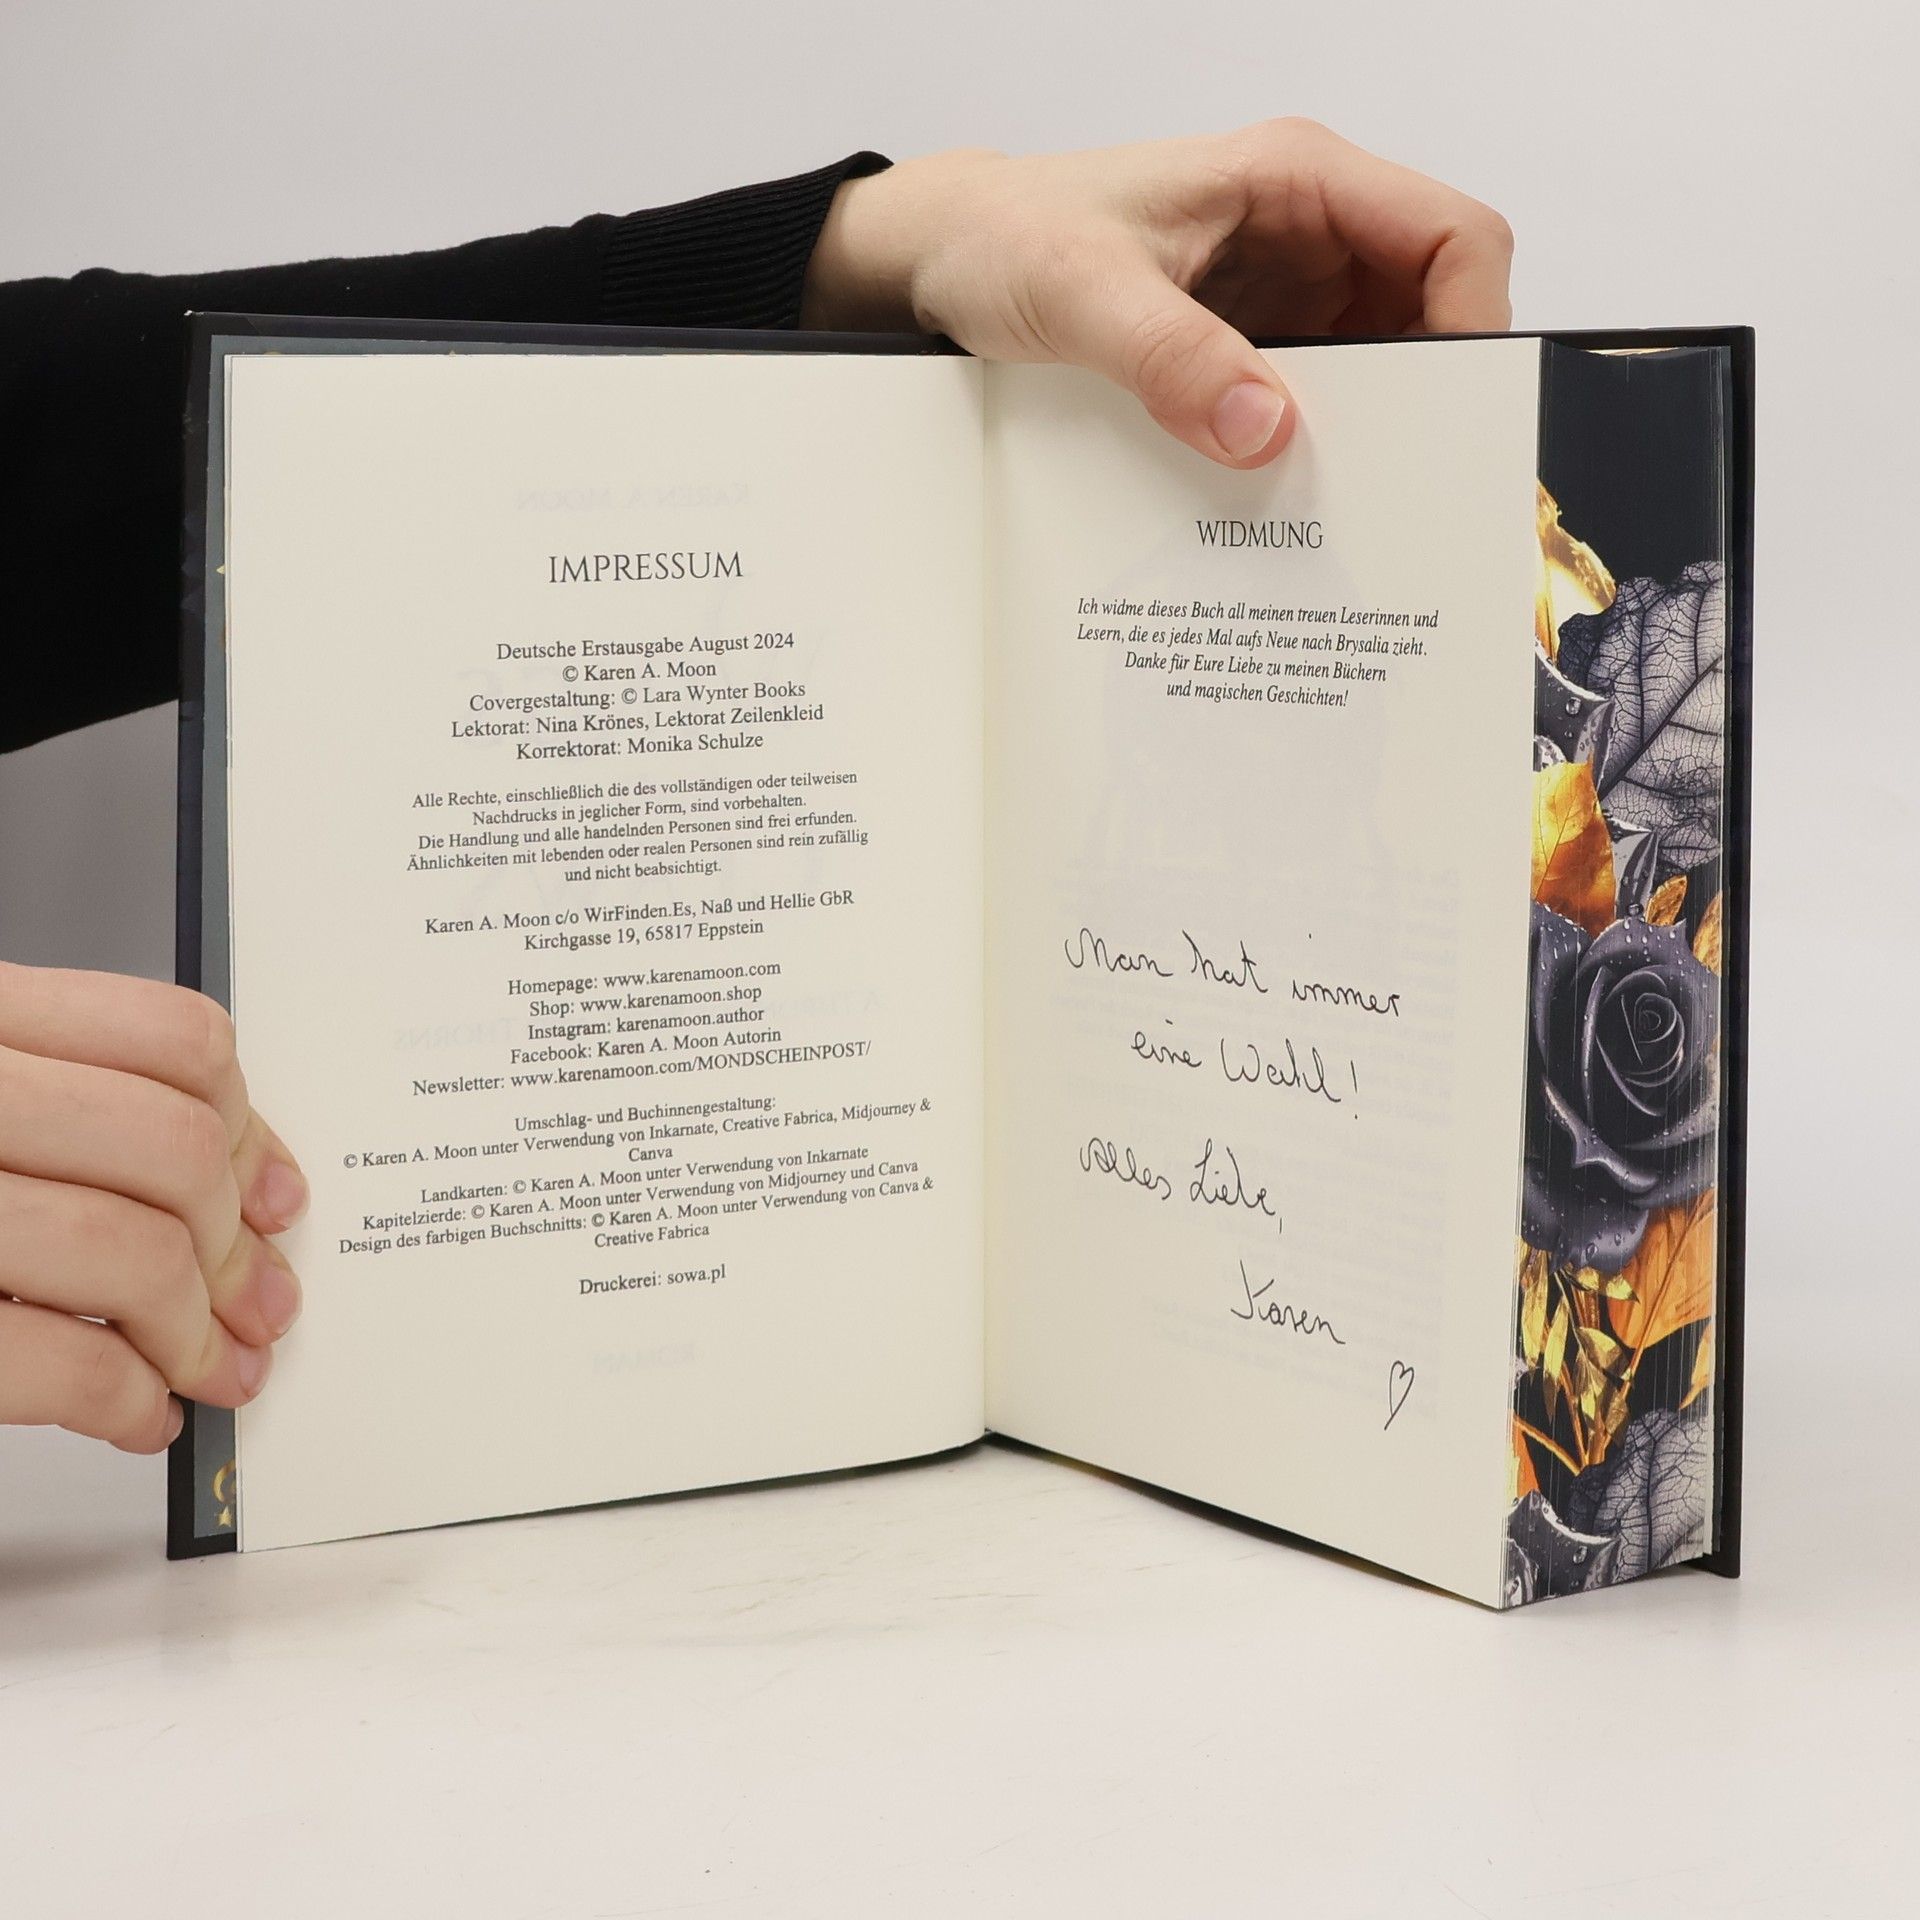 IMPRESSUM
Deutsche Erstausgabe August 2024
© Karen A. Moon
Covergestaltung: © Lara Wynter Books
Lektorat: Nina Krönes, Lektorat Zeilenkleid
Korrektorat: Monika Schulze
Alle Rechte, einschließlich die des vollständigen oder teilweisen
Nachdrucks in jeglicher Form, sind vorbehalten.
Die Handlung und alle handelnden Personen sind frei erfunden.
Ähnlichkeiten mit lebenden oder realen Personen sind rein zufällig
und nicht beabsichtigt.
Karen A. Moon c/o WirFinden.Es, Naß und Hellie GbR
Kirchgasse 19, 65817 Eppstein
Homepage: www.karenamoon.com
Shop: www.karenamoon.shop
Instagram: karenamoon.author
Facebook: Karen A. Moon Autorin
Newsletter: www.karenamoon.com/MONDSCHEINPOST/
Umschlag- und Buchinnengestaltung:
© Karen A. Moon unter Verwendung von Inkarnate, Creative Fabrica, Midjourney &
Canva
Landkarten: © Karen A. Moon unter Verwendung von Inkarnate
Kapitelzierde: © Karen A. Moon unter Verwendung von Midjourney und Canva
Design des farbigen Buchschnitts: © Karen A. Moon unter Verwendung von Canva &
Creative Fabrica
Druckerei: sowa.pl
WIDMUNG
Ich widme dieses Buch all meinen treuen Leserinnen und
Lesern, die es jedes Mal aufs Neue nach Brysalia zieht.
Danke für Eure Liebe zu meinen Büchern
und magischen Geschichten!
Man hat immer
eine Wahl!
Alles Liebe,
Karen